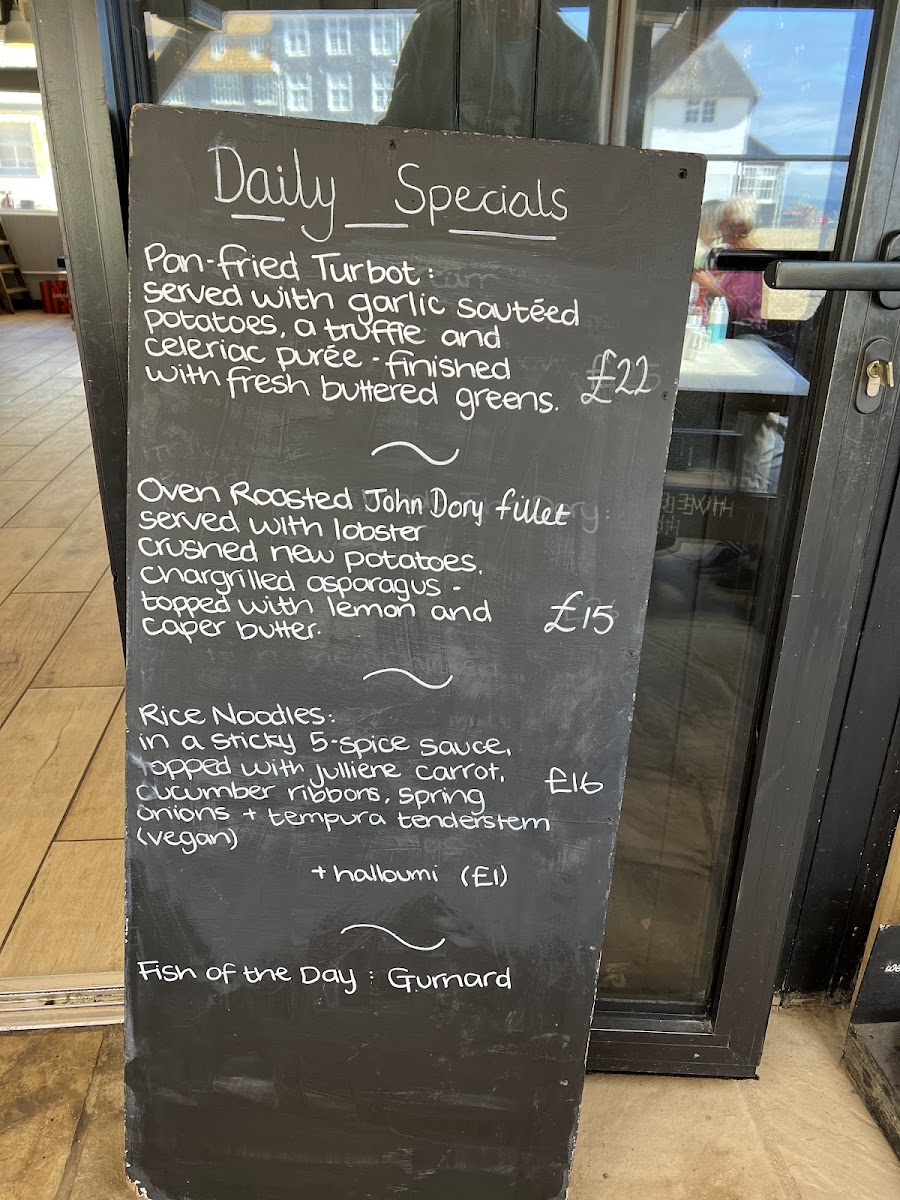 Daily Specials
Pan-fried Turbot:
served with garlic sautéed
potatoes, a truffle and
celeriac purée - finished
with fresh buttered greens.
£22
Oven Roasted John Dory fillet
served with lobster
crushed new potatoes,
chargrilled asparagus -
topped with lemon and
caper butter.
£15
Rice Noodles:
in a sticky 5-spice sauce,
topped with julliene carrot,
cucumber ribbons, spring
onions + tempura tenderstem
(vegan)
£16
+ halloumi (£1)
Fish of the Day : Gurnard